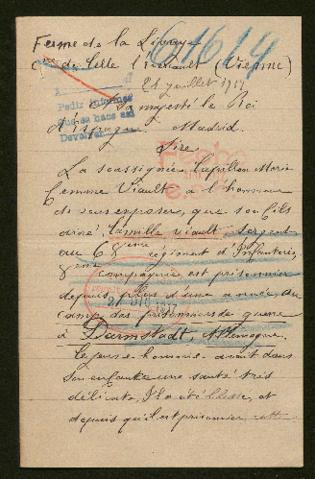 Ferme de la
61614
Cne de Celle l'Evescault (Vienne)
21 juillet 1917
A Sa majesté le Roi
Pedir informes
que se hace así
Devolver
d'Espagne. Madrid.
Sire,
La soussignée Marie
Femme Viault a l'honneur
de vous exposer, que son fils
aîné, Camille Viault, Sergent
au 68eme régiment d'Infanterie,
8eme compagnie est prisonnier
depuis plus d'une année, au
camp des prisonniers de guerre
à Darmstadt, Allemagne,
Ce jeune homme avait dans
son enfance une santé très
délicate, Il a été blessé, et
depuis qu'il est prisonnier, cette